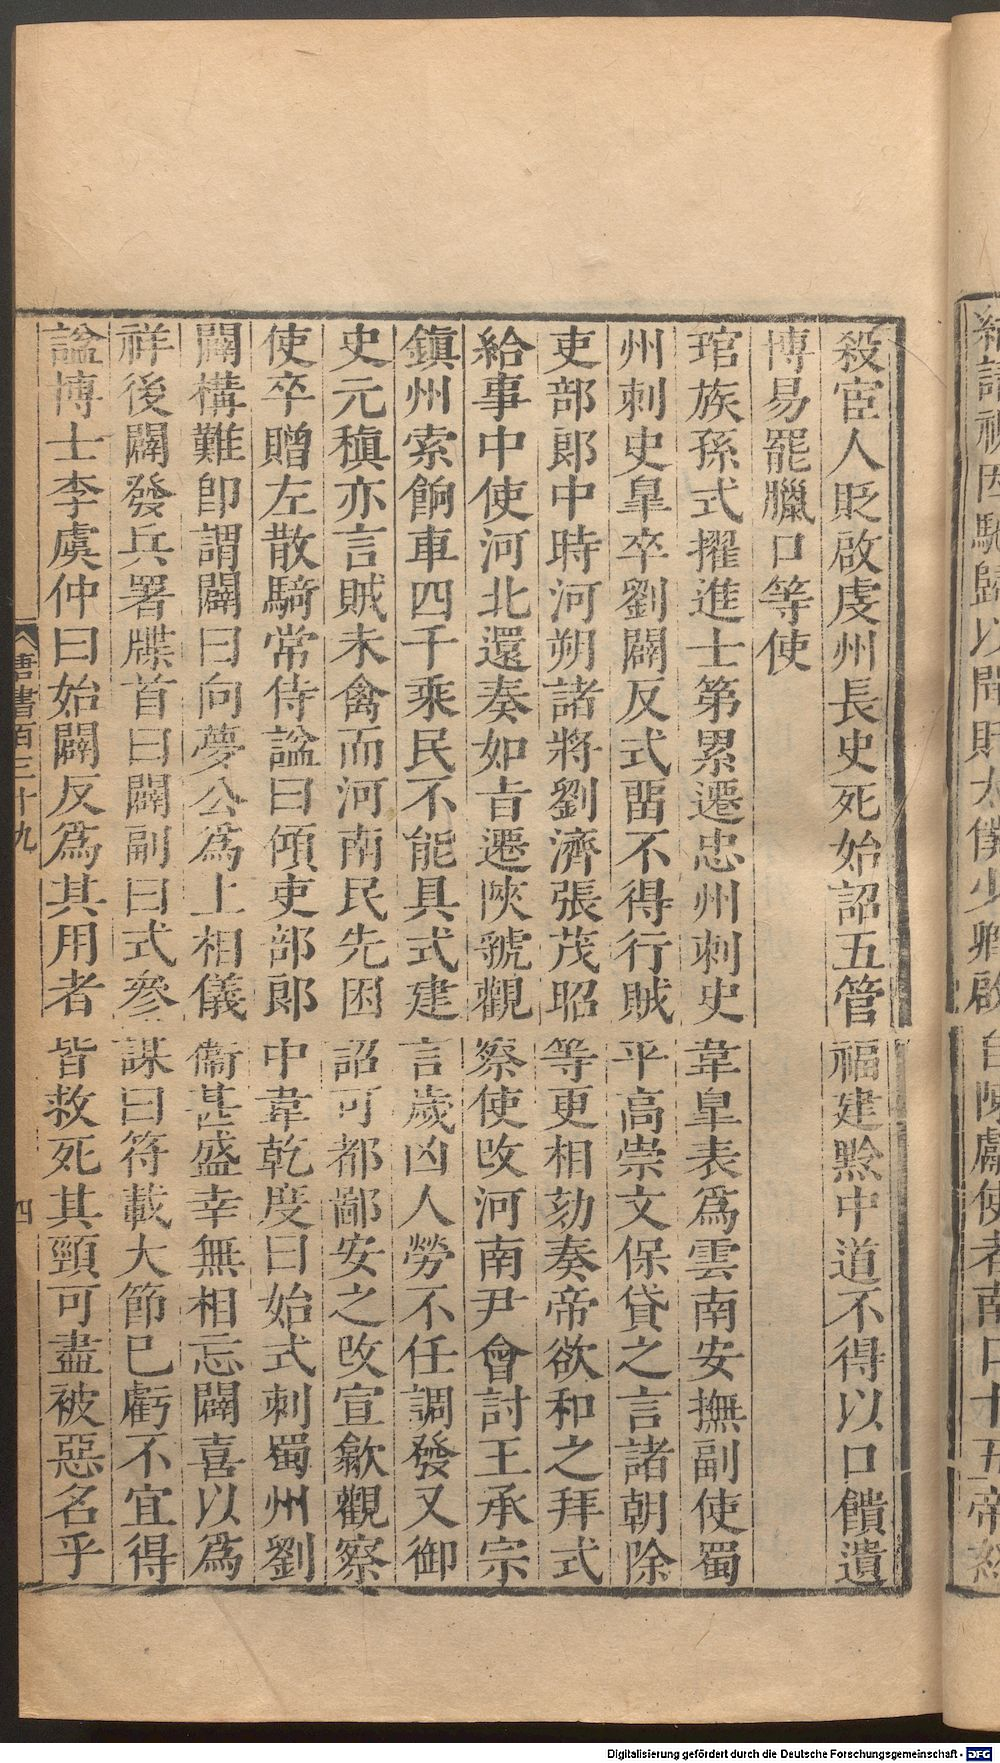 殺宦人貶啟虔州長史死始詔五管福建黔中道不得以口饋遺
博易罷臘口等使
琯族孫式擢進士第累遷忠州刺史韋臯表爲雲南安撫副使蜀
州刺史臯卒劉闢反式畱不得行賊平高崇文保貸之言諸朝除
吏部郎中時河朔諸將劉濟張茂昭等更相劾奏帝欲和之拜式
給事中使河北還奏如旨遷陝虢觀察使改河南尹會討王承宗
鎮州索餉車四千乘民不能具式建言歲凶人勞不任調發又御
史元稹亦言賊未禽而河南民先困詔可都鄙安之改宣歙觀察
使卒贈左散騎常侍諡曰傾吏部郎中韋乾度曰始式刺蜀州劉
闢構難卽謂闢曰向夢公爲上相儀衞甚盛幸無相忘闢喜以爲
祥後闢發兵署牒首曰闢副曰式參謀曰符載大節已虧不宜得
諡博士李虞仲曰始闢反爲其用者皆救死其頸可盡被惡名乎
唐書百三十九
四
給請視因
歸以聞貶太僕少卿啟自陳獻使者南口十五帝
Digitalisierung gefördert durch die Deutsche Forschungsgemeinschaft - DFG